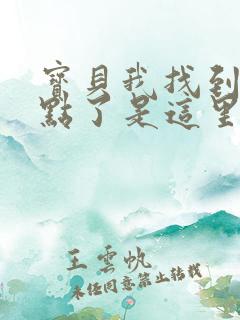 寶貝我找到
點了是這里
王雲帆
未經同意禁止轉載